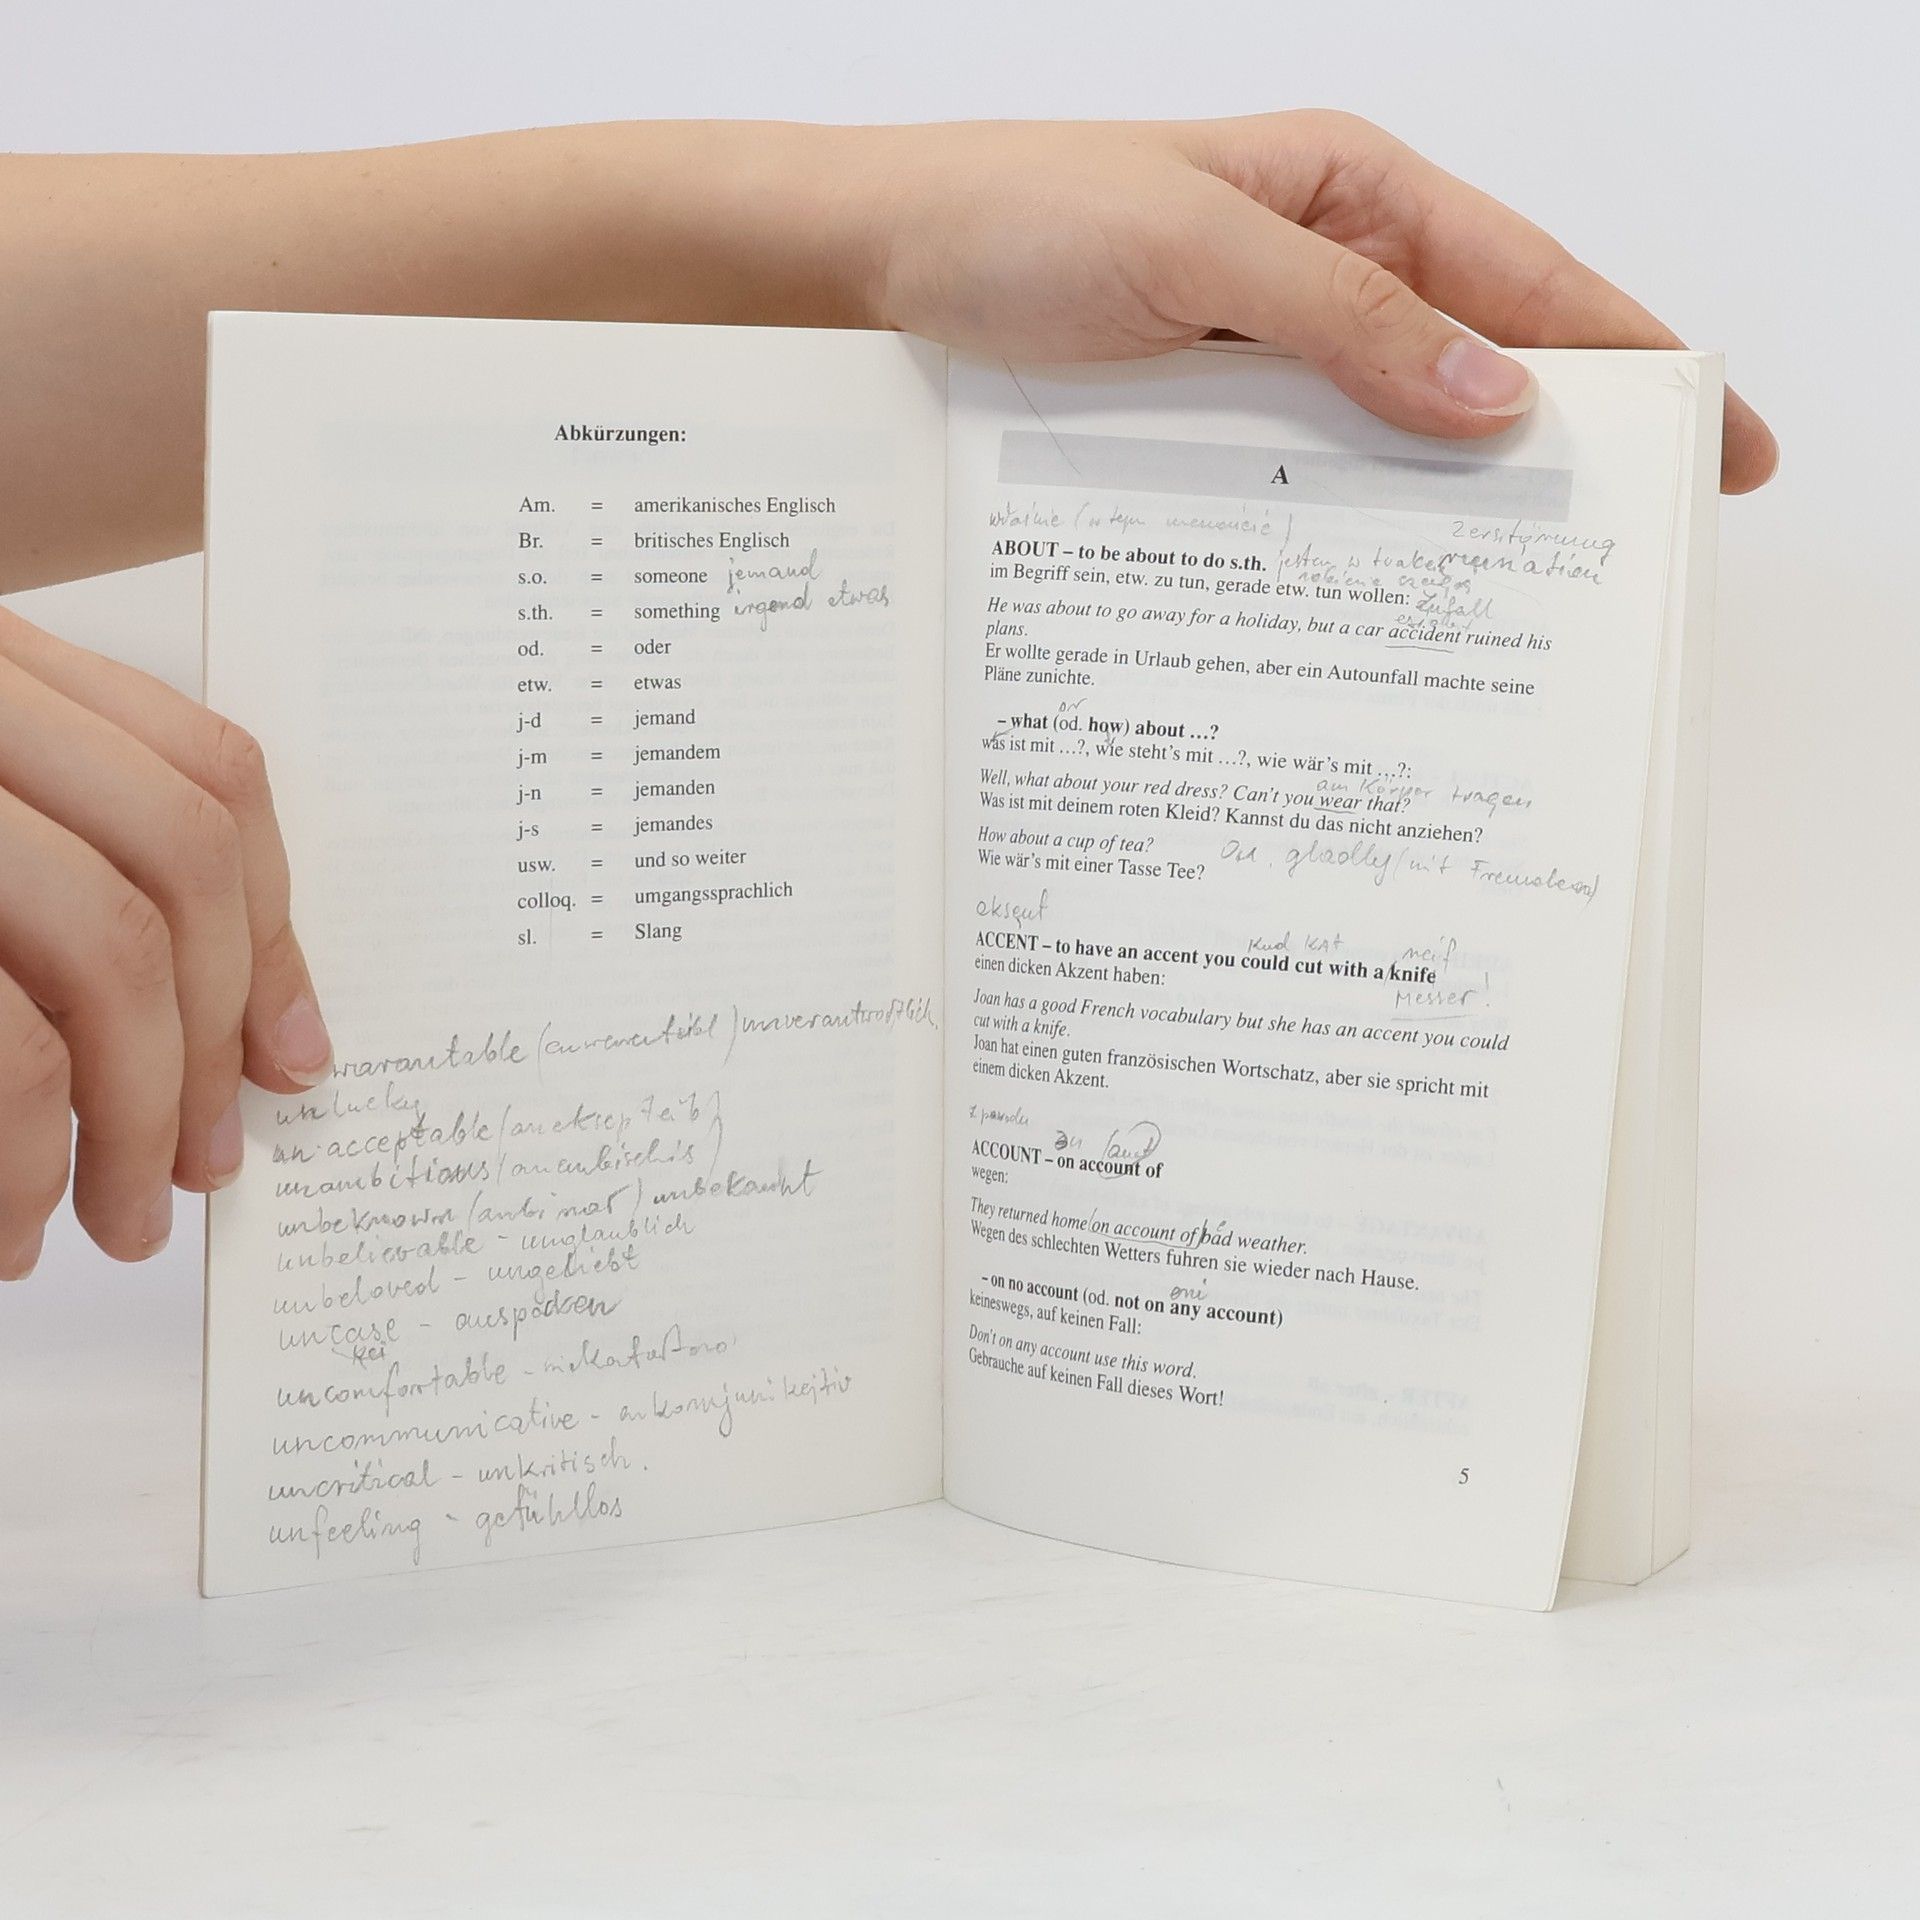 Abkürzungen:
Am. = amerikanisches Englisch
Br. = britisches Englisch
s.o. = someone jemand
s.th. = something irgend etwas
od. = oder
etw. = etwas
j-d = jemand
j-m = jemandem
j-n = jemanden
j-s = jemandes
usw. = und so weiter
colloq. = umgangssprachlich
sl. = Slang
warantable unverantwortlich
unlucky
unacceptable
unambitious
unbeknown unbekannt
unbelievable - unglaublich
unbeloved - ungeliebt
uncase - auspacken
kei
uncomfortable -
uncommunicative -
uncritical - unkritisch.
unfeeling - gefühllos
A
właśnie (w tym momencie)
Zerstörung
ABOUT – to be about to do s.th. jestem w
im Begriff sein, etw. zu tun, gerade etw. tun wollen:
Zufall
He was about to go away for a holiday, but a car accident ruined his
plans.
Er wollte gerade in Urlaub gehen, aber ein Autounfall machte seine
Pläne zunichte.
or
– what (od. how) about …?
was ist mit …?, wie steht's mit …?, wie wär's mit …?:
am Körper tragen
Well, what about your red dress? Can't you wear that?
Was ist mit deinem roten Kleid? Kannst du das nicht anziehen?
How about a cup of tea?
gladlly (mit
Wie wär's mit einer Tasse Tee?
eksent
kud kat neif
ACCENT – to have an accent you could cut with a knife
einen dicken Akzent haben:
Messer!
Joan has a good French vocabulary but she has an accent you could
cut with a knife.
Joan hat einen guten französischen Wortschatz, aber sie spricht mit
einem dicken Akzent.
z powodu
ACCOUNT – on account of
wegen:
They returned home on account of bad weather.
Wegen des schlechten Wetters fuhren sie wieder nach Hause.
eni
– on no account (od. not on any account)
keineswegs, auf keinen Fall:
Don't on any account use this word.
Gebrauche auf keinen Fall dieses Wort!
5